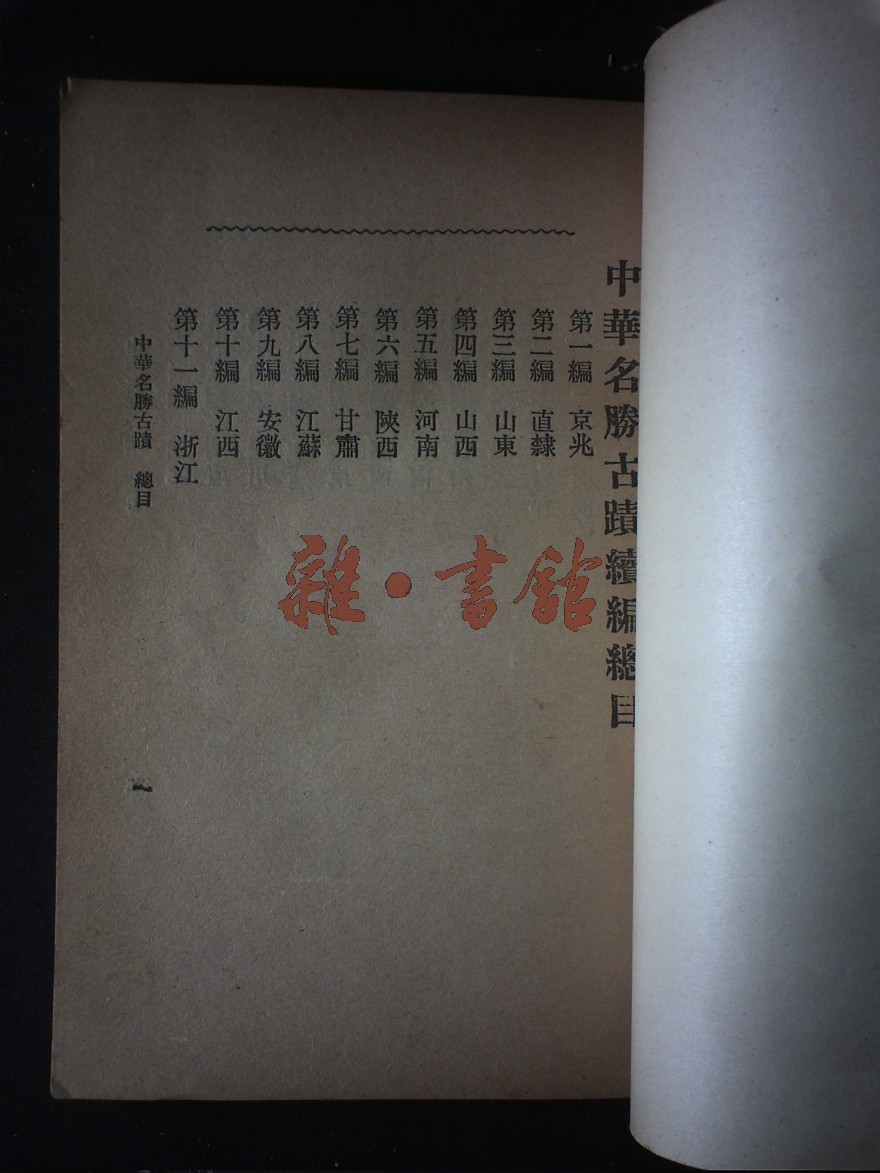 中華名勝古蹟續編總目
第一編 京兆
第二編 直隸
第三編 山東
第四編 山西
第五編 河南
第六編 陝西
第七編 甘肅
第八編 江蘇
第九編 安徽
第十編 江西
第十一編 浙江
中華名勝古蹟 總目
一
雜·書館